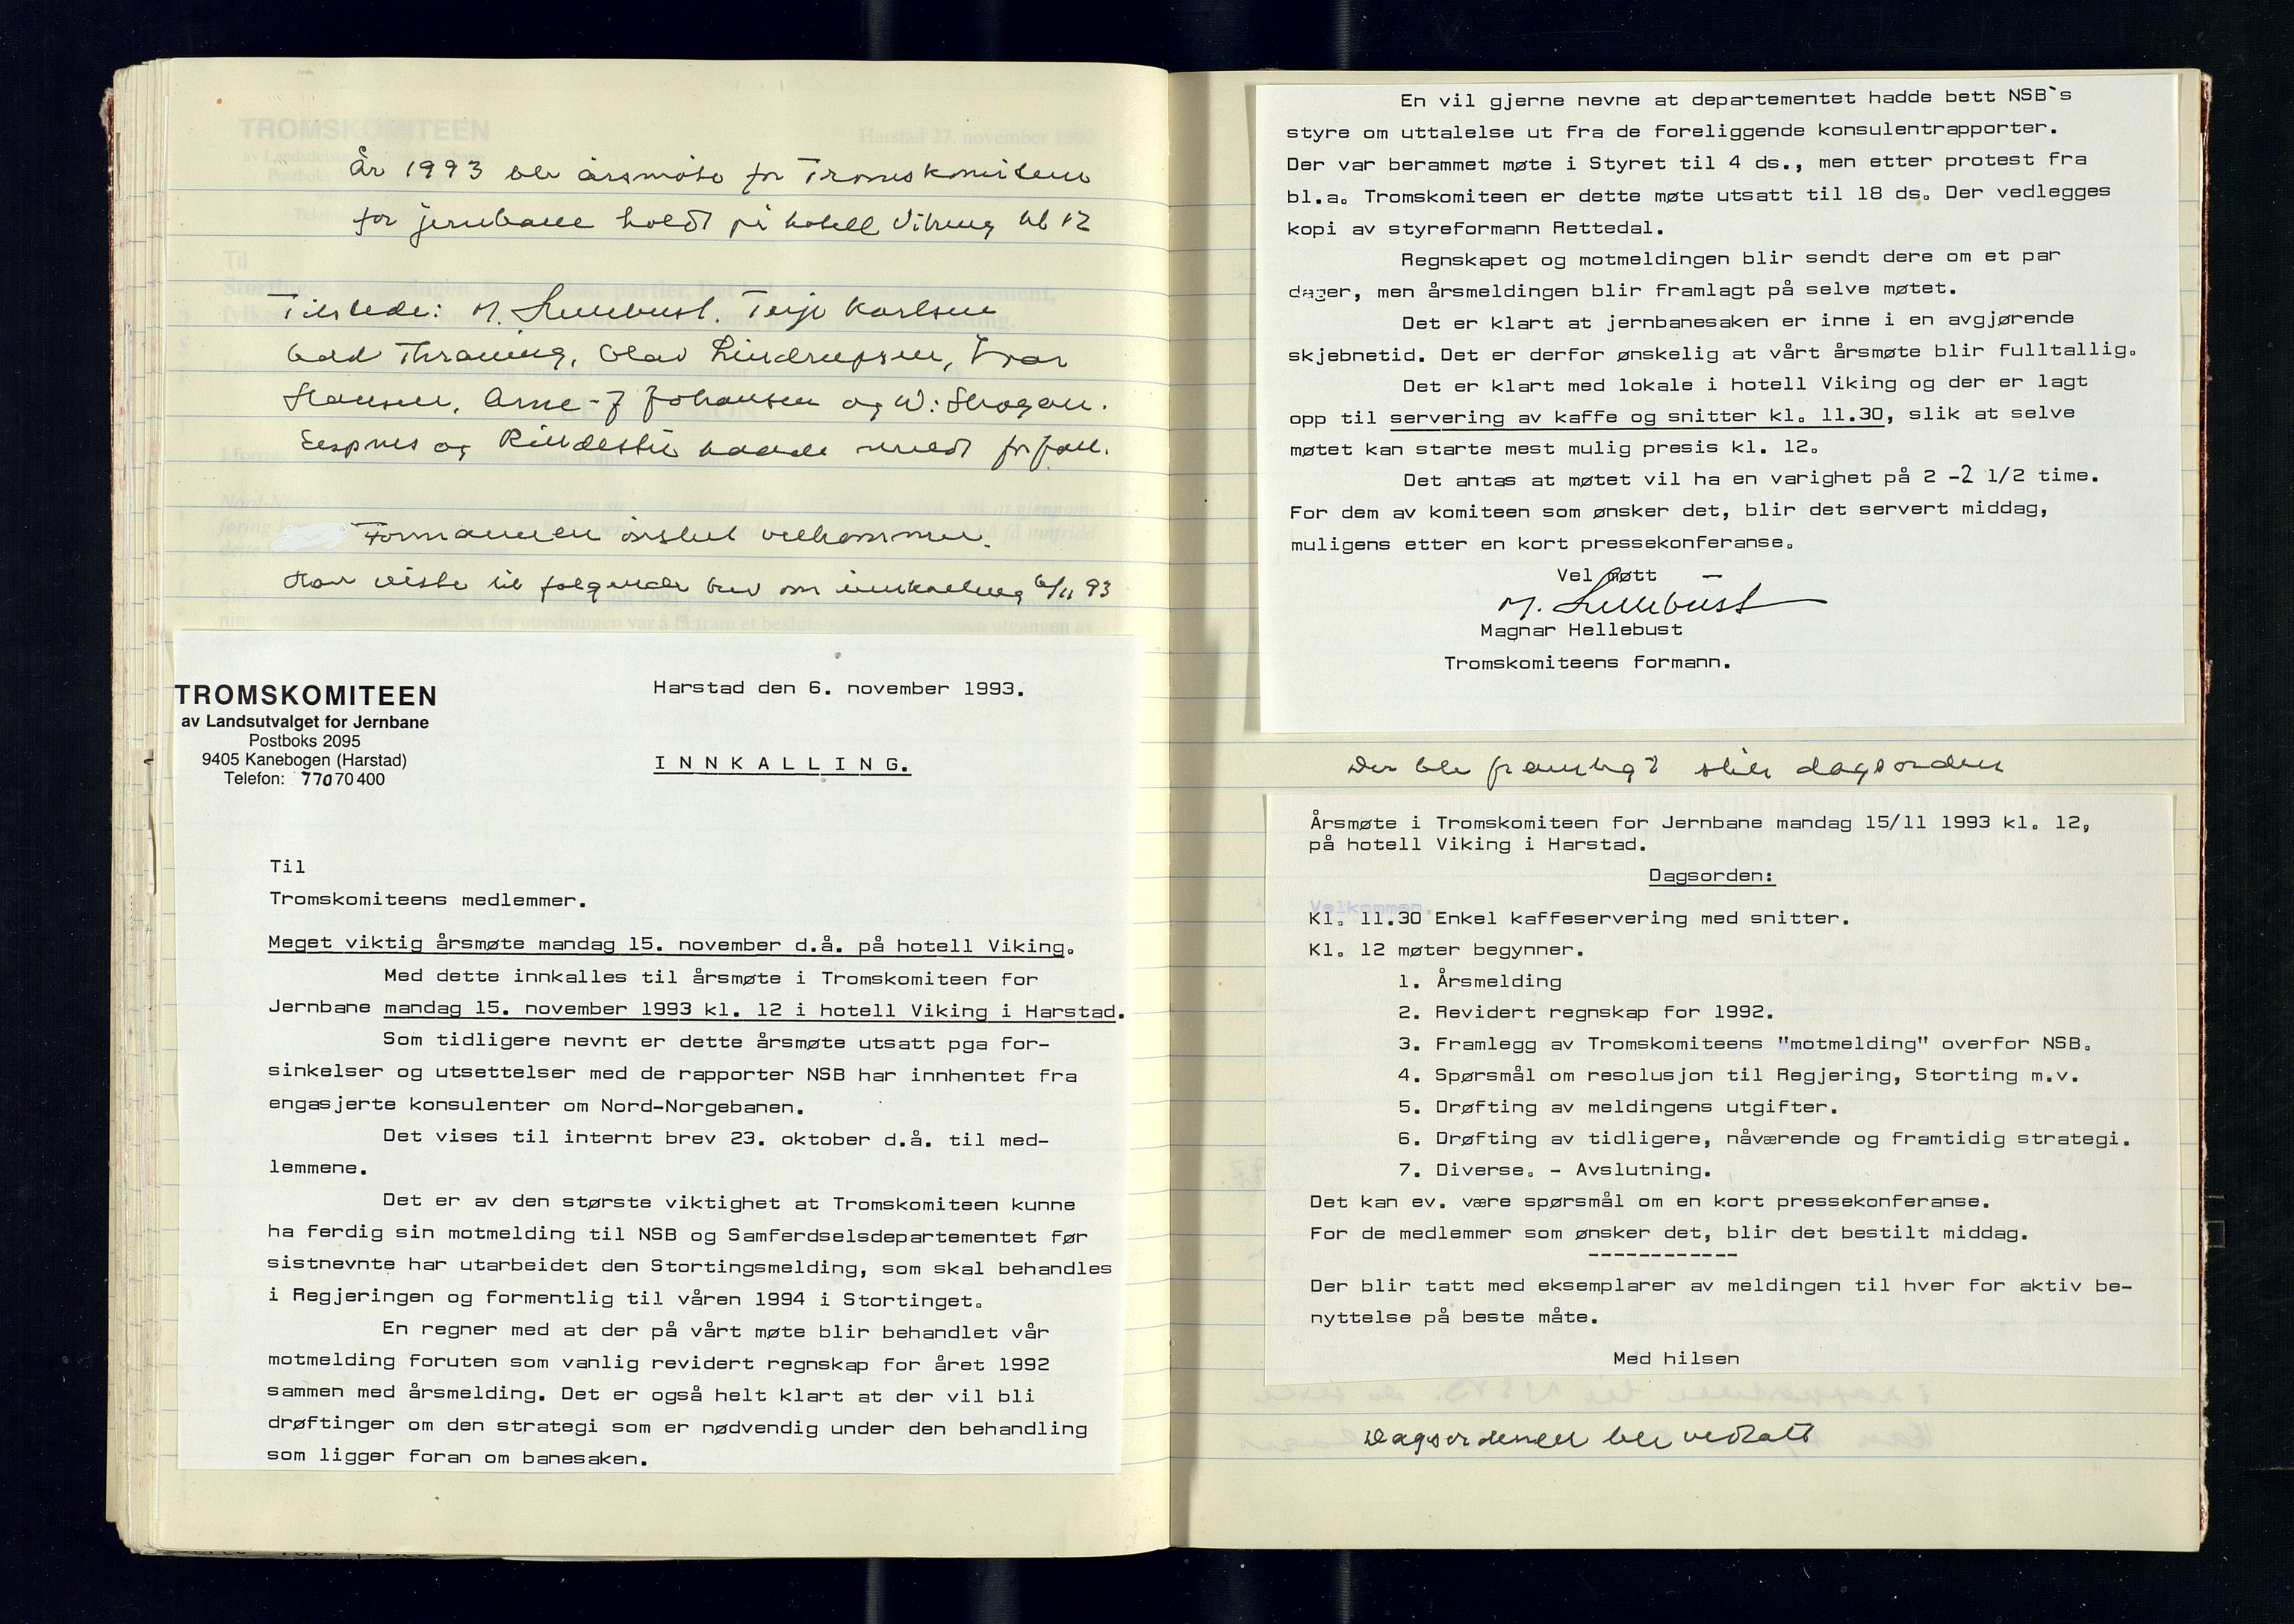 År 1993 ble årsmøte for Tromskomiteen
for jernbane holdt på hotell Viking kl 12
Tilstede: M. Hellebust. Terje Karlsen
Odd Thraning, Olav Lindrupsen, Ivar
Hansen, Arne-J Johansen og W: Skogan.
Espnes og hadde meldt forfall.
Formannen ønsket velkommen.
Han viste til følgende brev om innkalling 6/11 93
TROMSKOMITEEN
av Landsutvalget for Jernbane
Postboks 2095
9405 Kanebogen (Harstad)
Telefon: 77070400
Harstad den 6. november 1993.
INNKALLING.
Til
Tromskomiteens medlemmer.
Meget viktig årsmøte mandag 15. november d.å. på hotell Viking.
Med dette innkalles til årsmøte i Tromskomiteen for
Jernbane mandag 15. november 1993 kl. 12 i hotell Viking i Harstad.
Som tidligere nevnt er dette årsmøte utsatt pga for-
sinkelser og utsettelser med de rapporter NSB har innhentet fra
engasjerte konsulenter om Nord-Norgebanen.
Det vises til internt brev 23. oktober d.å. til med-
lemmene.
Det er av den største viktighet at Tromskomiteen kunne
ha ferdig sin motmelding til NSB og Samferdselsdepartementet før
sistnevnte har utarbeidet den Stortingsmelding, som skal behandles
i Regjeringen og formentlig til våren 1994 i Stortinget.
En regner med at der på vårt møte blir behandlet vår
motmelding foruten som vanlig revidert regnskap for året 1992
sammen med årsmelding. Det er også helt klart at der vil bli
drøftinger om den strategi som er nødvendig under den behandling
som ligger foran om banesaken.
En vil gjerne nevne at departementet hadde bett NSB`s
styre om uttalelse ut fra de foreliggende konsulentrapporter.
Der var berammet møte i Styret til 4 ds., men etter protest fra
bl.a. Tromskomiteen er dette møte utsatt til 18 ds. Der vedlegges
kopi av styreformann Rettedal.
Regnskapet og motmeldingen blir sendt dere om et par
dager, men årsmeldingen blir framlagt på selve møtet.
Det er klart at jernbanesaken er inne i en avgjørende
skjebnetid. Det er derfor ønskelig at vårt årsmøte blir fulltallig.
Det er klart med lokale i hotell Viking og der er lagt
opp til servering av kaffe og snitter kl. 11.30, slik at selve
møtet kan starte mest mulig presis kl. 12.
Det antas at møtet vil ha en varighet på 2 -2 1/2 time.
For dem av komiteen som ønsker det, blir det servert middag,
muligens etter en kort pressekonferanse.
Vel møtt
M. Hellebust
Magnar Hellebust
Tromskomiteens formann.
Der ble framlagt slik dagsorden
Årsmøte i Tromskomiteen for Jernbane mandag 15/11 1993 kl. 12,
på hotell Viking i Harstad.
Dagsorden:
Velkommen.
Kl. 11.30 Enkel kaffeservering med snitter.
Kl. 12 møter begynner.
1. Årsmelding
2. Revidert regnskap for 1992.
3. Framlegg av Tromskomiteens "motmelding" overfor NSB.
4. Spørsmål om resolusjon til Regjering, Storting m.v.
5. Drøfting av meldingens utgifter.
6. Drøfting av tidligere, nåværende og framtidig strategi.
7. Diverse. - Avslutning.
Det kan ev. være spørsmål om en kort pressekonferanse.
For de medlemmer som ønsker det, blir det bestilt middag.
------------
Der blir tatt med eksemplarer av meldingen til hver for aktiv be-
nyttelse på beste måte.
Med hilsen
Dagsordenen ble vedtatt